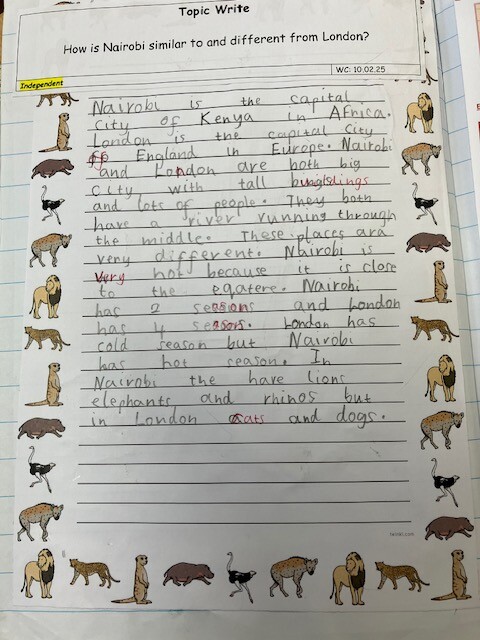 Topic Write
How is Nairobi similar to and different from London?
WC: 10.02.25
Independent
Nairobi is the capital
city of Kenya in Africa.
London is the capital city
of England in Europe. Nairobi
and London are both big
city with tall buildings
and lots of people. They both
have a river running through
the middle. These places are
very different. Nairobi is
very hot because it is close
to the eqatere. Nairobi
has 2 seasons and London
has 4 seasons. London has
cold season but Nairobi
has hot season. In
Nairobi the have lions
elephants and rhinos but
in London cats and dogs.
twinkl.com